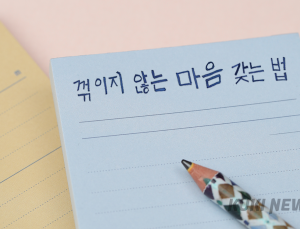 꺾이지 않는 마음 갖는 법